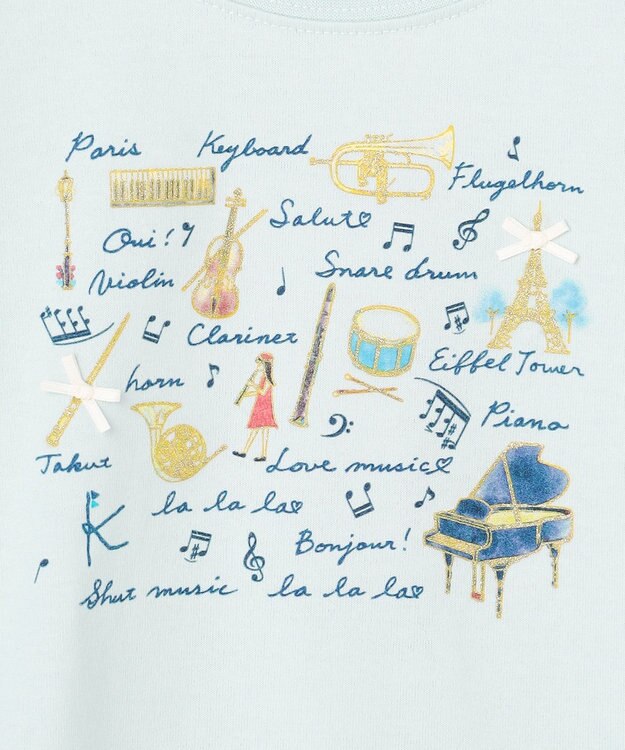 Paris Keyboard
Flugelhorn
Salut
Oui!
Violin Snare drum
Clarinet
Eiffel Tower
horn
Piana
Takut Love music
K la la la
Bonjour!
Shut music la la la